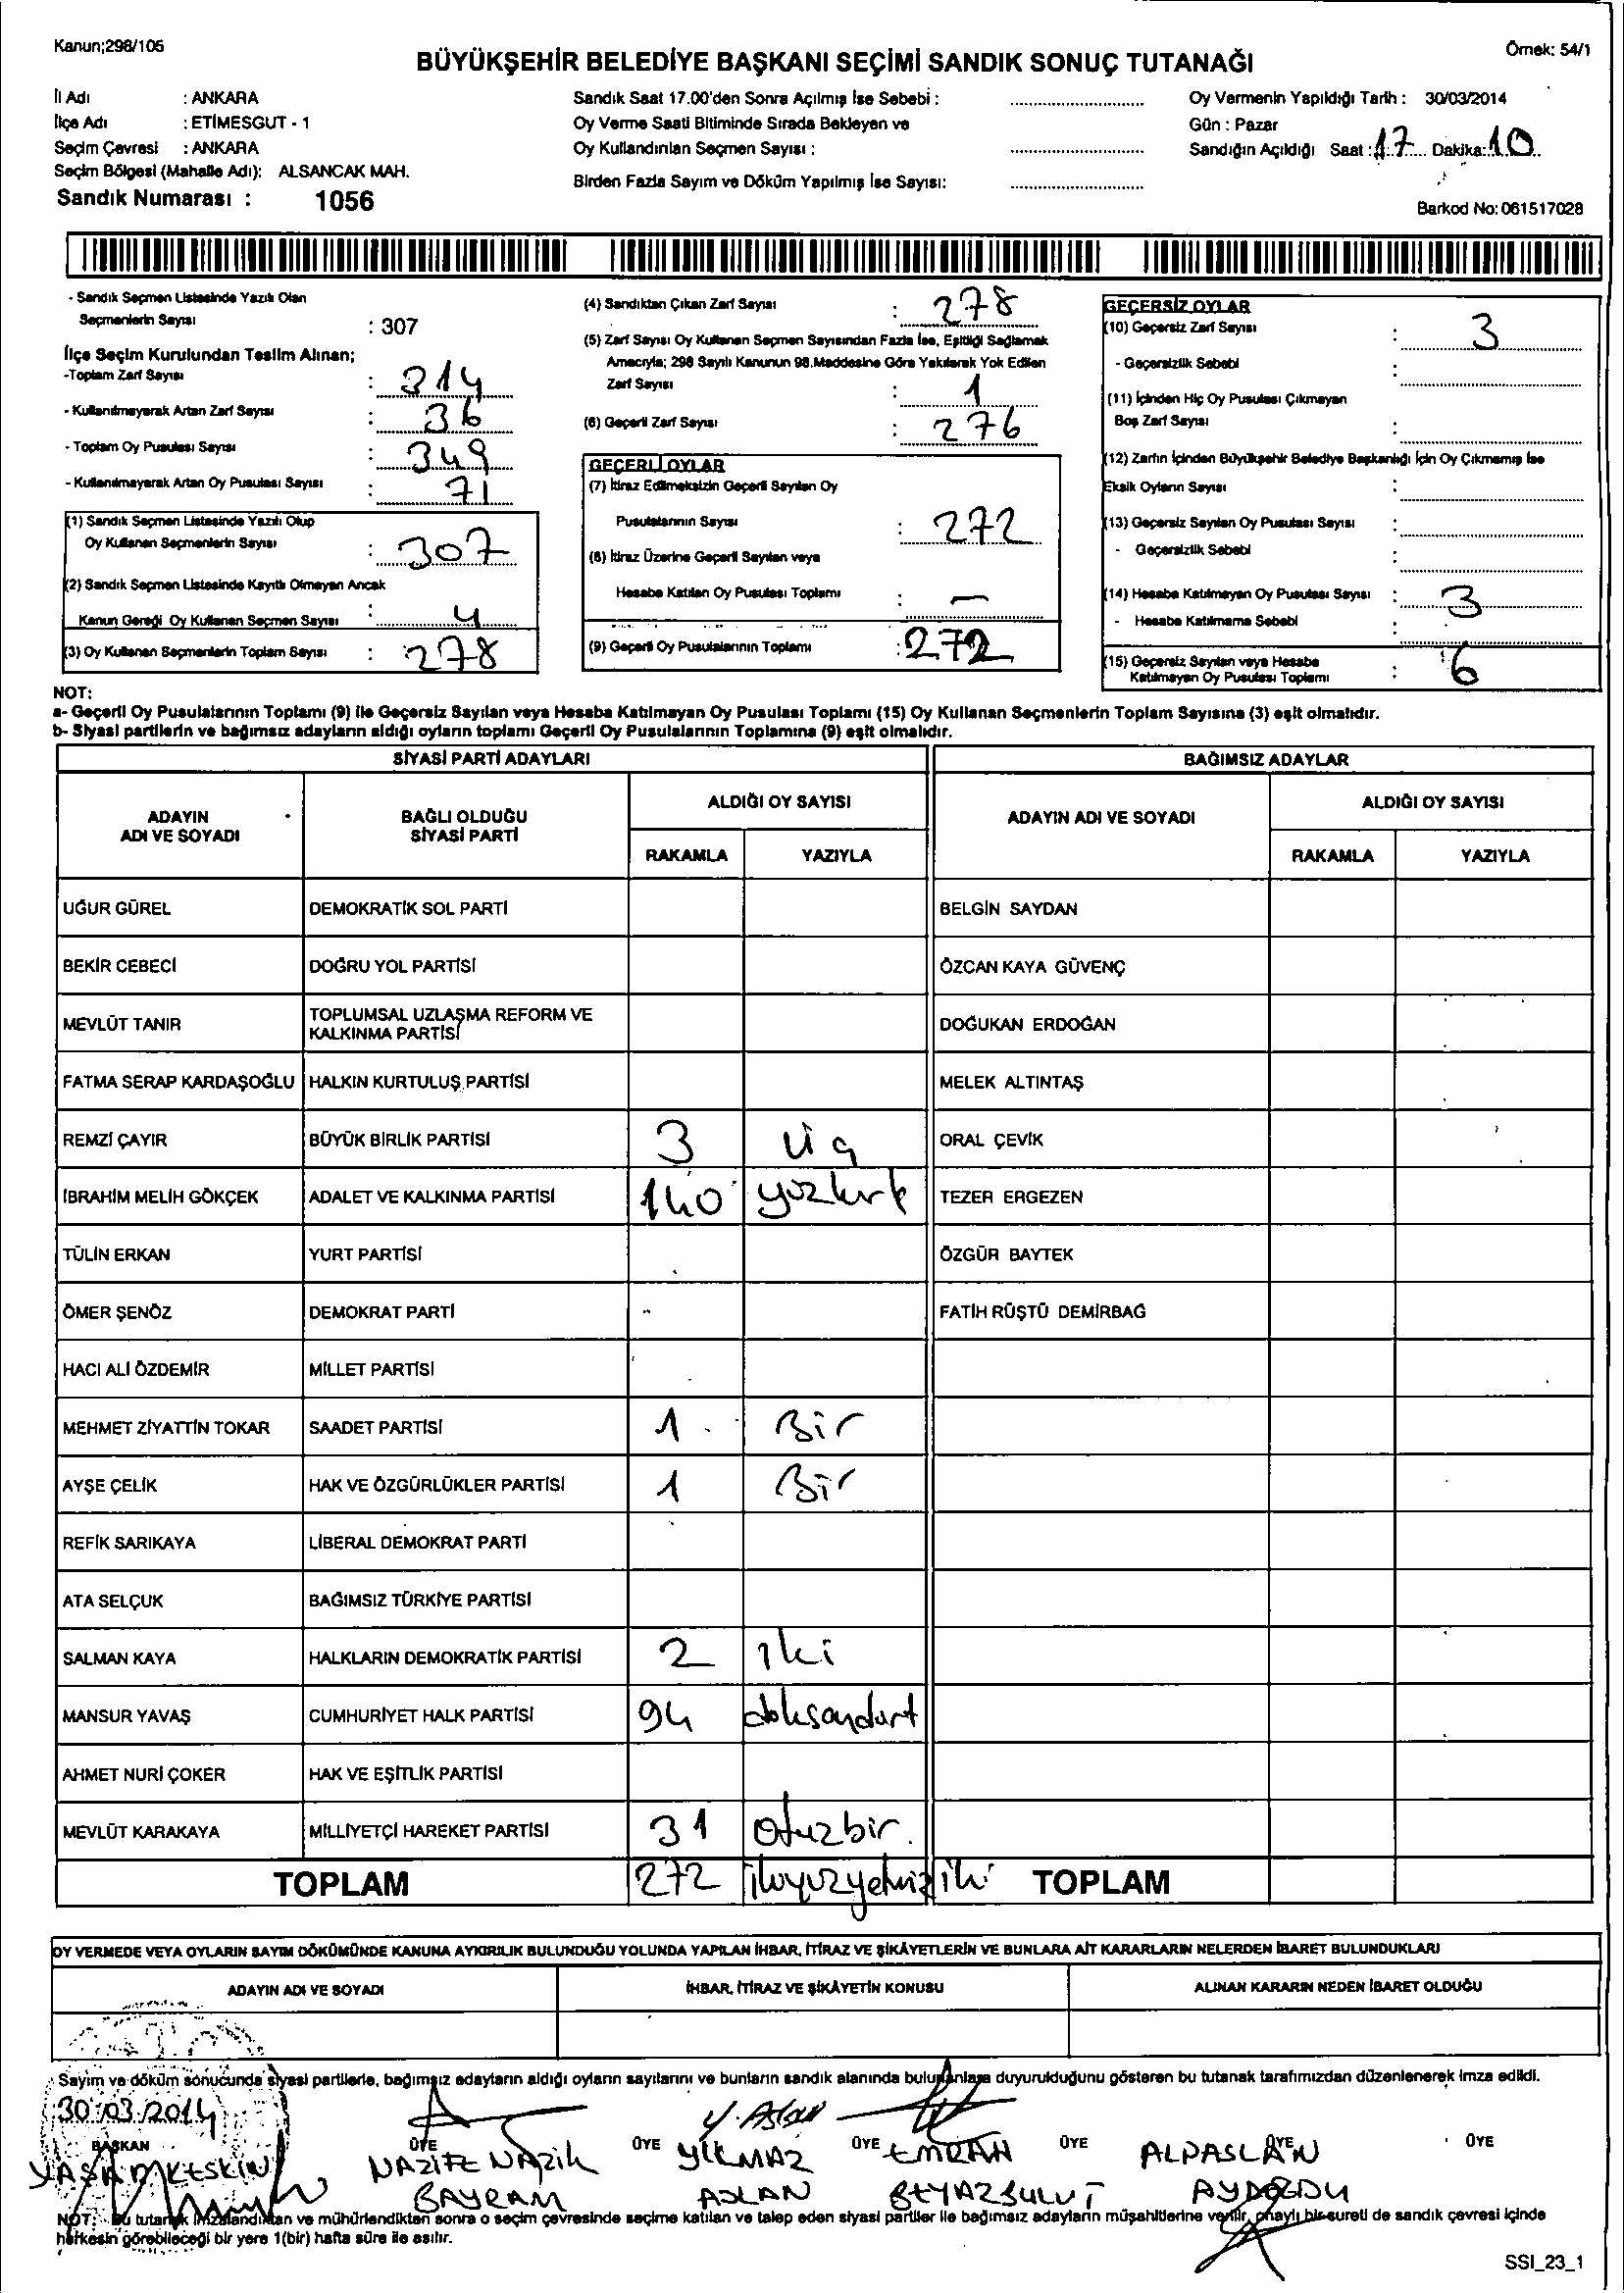 Kanun;298/105
Örnek: 54/1
BÜYÜKŞEHİR BELEDİYE BAŞKANI SEÇİMİ SANDIK SONUÇ TUTANAĞI
İl Adı : ANKARA
İlçe Adı : ETİMESGUT - 1
Seçim Çevresi : ANKARA
Seçim Bölgesi (Mahalle Adı): ALSANCAK MAH.
Sandık Numarası : 1056
Sandık Saat 17.00'den Sonra Açılmış İse Sebebi :
Oy Verme Saati Bitiminde Sırada Bekleyen ve
Oy Kullandırılan Seçmen Sayısı :
Birden Fazla Sayım ve Döküm Yapılmış İse Sayısı:
Oy Vermenin Yapıldığı Tarih : 30/03/2014
Gün : Pazar
Sandığın Açıldığı Saat : 17 Dakika: 10
Barkod No: 061517028
- Sandık Seçmen Listesinde Yazılı Olan
Seçmenlerin Sayısı : 307
İlçe Seçim Kurulundan Teslim Alınan;
-Toplam Zarf Sayısı : 314
- Kullanılmayarak Artan Zarf Sayısı : 36
- Toplam Oy Pusulası Sayısı : 349
- Kullanılmayarak Artan Oy Pusulası Sayısı : 71
(1) Sandık Seçmen Listesinde Yazılı Olup
Oy Kullanan Seçmenlerin Sayısı : 307
(2) Sandık Seçmen Listesinde Kayıtlı Olmayan Ancak
Kanun Gereği Oy Kullanan Seçmen Sayısı : 4
(3) Oy Kullanan Seçmenlerin Toplam Sayısı : 278
(4) Sandıktan Çıkan Zarf Sayısı : 278
(5) Zarf Sayısı Oy Kullanan Seçmen Sayısından Fazla İse, Eşitliği Sağlamak
Amacıyla; 298 Sayılı Kanunun 98.Maddesine Göre Yakılarak Yok Edilen
Zarf Sayısı : 1
(6) Geçerli Zarf Sayısı : 276
GEÇERLİ OYLAR
(7) İtiraz Edilmeksizin Geçerli Sayılan Oy
Pusulalarının Sayısı : 272
(8) İtiraz Üzerine Geçerli Sayılan veya
Hesaba Katılan Oy Pusulası Toplamı : -
(9) Geçerli Oy Pusulalarının Toplamı : 272
GEÇERSİZ OYLAR
(10) Geçersiz Zarf Sayısı : 3
- Geçersizlik Sebebi :
(11) İçinden Hiç Oy Pusulası Çıkmayan
Boş Zarf Sayısı :
(12) Zarfın İçinden Büyükşehir Belediye Başkanlığı İçin Oy Çıkmamış İse
Eksik Oyların Sayısı :
(13) Geçersiz Sayılan Oy Pusulası Sayısı :
- Geçersizlik Sebebi :
(14) Hesaba Katılmayan Oy Pusulası Sayısı : 3
- Hesaba Katılmama Sebebi :
(15) Geçersiz Sayılan veya Hesaba
Katılmayan Oy Pusulası Toplamı : 6
NOT:
a- Geçerli Oy Pusulalarının Toplamı (9) ile Geçersiz Sayılan veya Hesaba Katılmayan Oy Pusulası Toplamı (15) Oy Kullanan Seçmenlerin Toplam Sayısına (3) eşit olmalıdır.
b- Siyasi partilerin ve bağımsız adayların aldığı oyların toplamı Geçerli Oy Pusulalarının Toplamına (9) eşit olmalıdır.
SİYASİ PARTİ ADAYLARI BAĞIMSIZ ADAYLAR
ADAYIN ADI VE SOYADI BAĞLI OLDUĞU SİYASİ PARTİ ALDIĞI OY SAYISI ADAYIN ADI VE SOYADI ALDIĞI OY SAYISI
RAKAMLA YAZIYLA RAKAMLA YAZIYLA
UĞUR GÜREL DEMOKRATİK SOL PARTİ BELGİN SAYDAN
BEKİR CEBECİ DOĞRU YOL PARTİSİ ÖZCAN KAYA GÜVENÇ
MEVLÜT TANIR TOPLUMSAL UZLAŞMA REFORM VE KALKINMA PARTİSİ DOĞUKAN ERDOĞAN
FATMA SERAP KARDAŞOĞLU HALKIN KURTULUŞ PARTİSİ MELEK ALTINTAŞ
REMZİ ÇAYIR BÜYÜK BİRLİK PARTİSİ 3 üç ORAL ÇEVİK
İBRAHİM MELİH GÖKÇEK ADALET VE KALKINMA PARTİSİ 140 yüzkırk TEZER ERGEZEN
TÜLİN ERKAN YURT PARTİSİ ÖZGÜR BAYTEK
ÖMER ŞENÖZ DEMOKRAT PARTİ FATİH RÜŞTÜ DEMİRBAĞ
HACI ALİ ÖZDEMİR MİLLET PARTİSİ
MEHMET ZİYATTİN TOKAR SAADET PARTİSİ 1 Bir
AYŞE ÇELİK HAK VE ÖZGÜRLÜKLER PARTİSİ 1 Bir
REFİK SARIKAYA LİBERAL DEMOKRAT PARTİ
ATA SELÇUK BAĞIMSIZ TÜRKİYE PARTİSİ
SALMAN KAYA HALKLARIN DEMOKRATİK PARTİSİ 2 iki
MANSUR YAVAŞ CUMHURİYET HALK PARTİSİ 94 doksandört
AHMET NURİ ÇOKER HAK VE EŞİTLİK PARTİSİ
MEVLÜT KARAKAYA MİLLİYETÇİ HAREKET PARTİSİ 31 otuzbir
TOPLAM 272 ikiyüzyetmişiki TOPLAM
OY VERMEDE VEYA OYLARIN SAYIM DÖKÜMÜNDE KANUNA AYKIRILIK BULUNDUĞU YOLUNDA YAPILAN İHBAR, İTİRAZ VE ŞİKÂYETLERİN VE BUNLARA AİT KARARLARIN NELERDEN İBARET BULUNDUKLARI
ADAYIN ADI VE SOYADI İHBAR, İTİRAZ VE ŞİKÂYETİN KONUSU ALINAN KARARIN NEDEN İBARET OLDUĞU
Sayım ve döküm sonucunda siyasi partilerle, bağımsız adayların aldığı oyların sayılarını ve bunların sandık alanında bulunanlara duyurulduğunu gösteren bu tutanak tarafımızdan düzenlenerek imza edildi.
30/03/2014
BAŞKAN ÜYE ÜYE ÜYE ÜYE ÜYE
YAŞAR KESKİN NAZİFE NAZİK BAYRAM Y. Aslan YILMAZ ASLAN EMRAH BEYAZBULUT ALPASLAN AYDOĞDU
NOT: Bu tutanak imzalandıktan ve mühürlendikten sonra o seçim çevresinde seçime katılan ve talep eden siyasi partiler ile bağımsız adayların müşahitlerine verilir, onaylı bir sureti de sandık çevresi içinde
herkesin görebileceği bir yere 1(bir) hafta süre ile asılır.
SSI_23_1